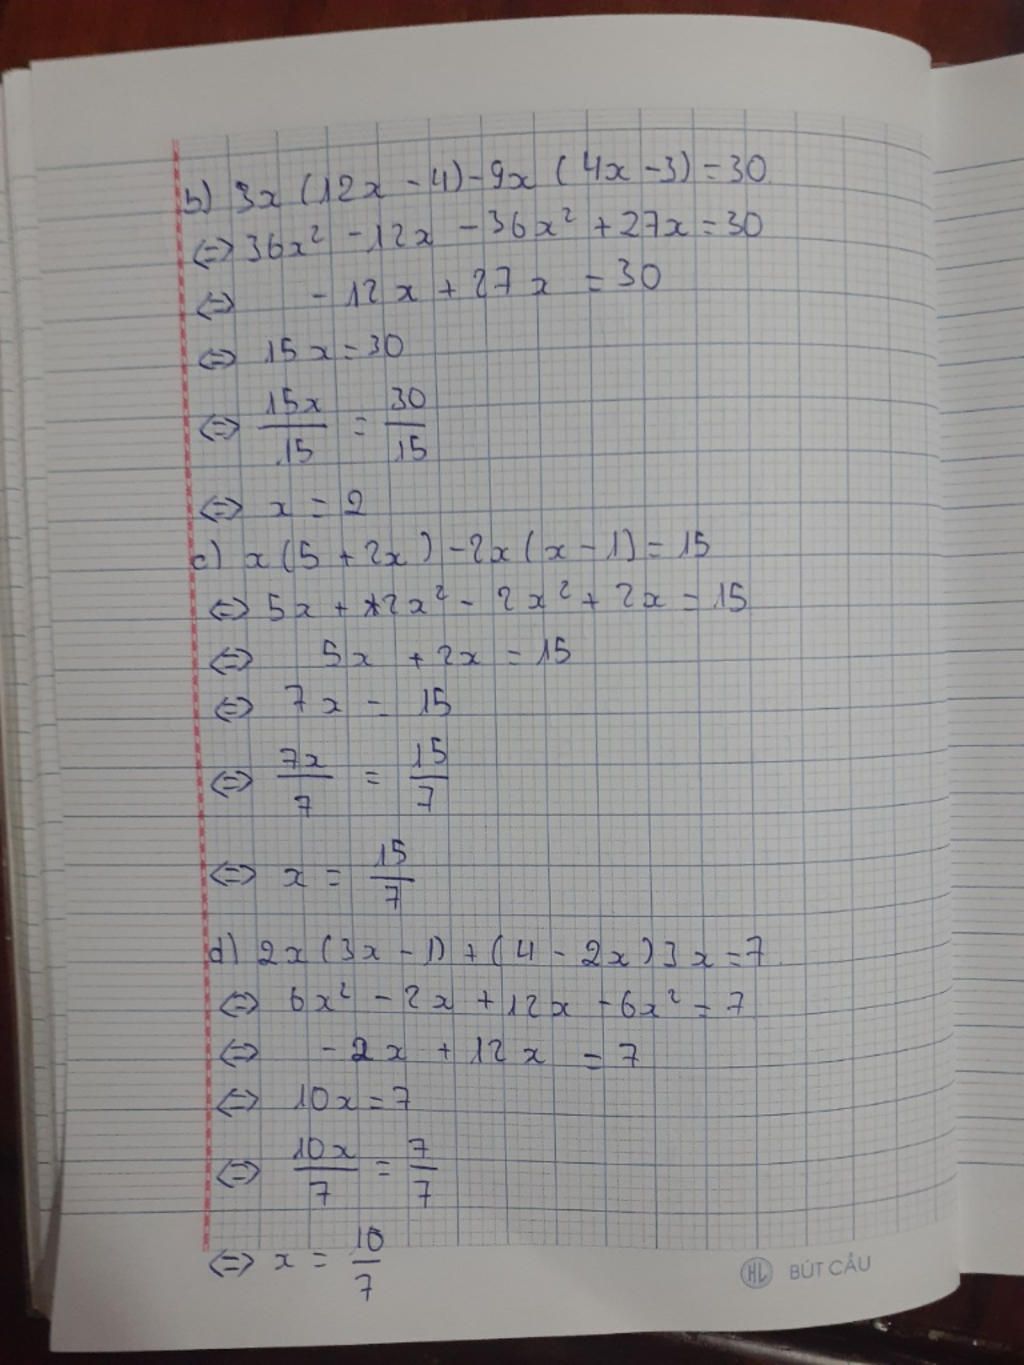 b) 3x (12x - 4) - 9x (4x - 3) = 30
⇔ 36x² - 12x - 36x² + 27x = 30
⇔ - 12x + 27x = 30
⇔ 15x = 30
⇔ 15x/15 = 30/15
⇔ x = 2
c) x(5 + 2x) - 2x(x - 1) = 15
⇔ 5x + 2x² - 2x² + 2x = 15
⇔ 5x + 2x = 15
⇔ 7x = 15
⇔ 7x/7 = 15/7
⇔ x = 15/7
d) 2x(3x - 1) + (4 - 2x)3x = 7
⇔ 6x² - 2x + 12x - 6x² = 7
⇔ - 2x + 12x = 7
⇔ 10x = 7
⇔ 10x/7 = 7/7
⇔ x = 10/7
HL BÚT CẦU